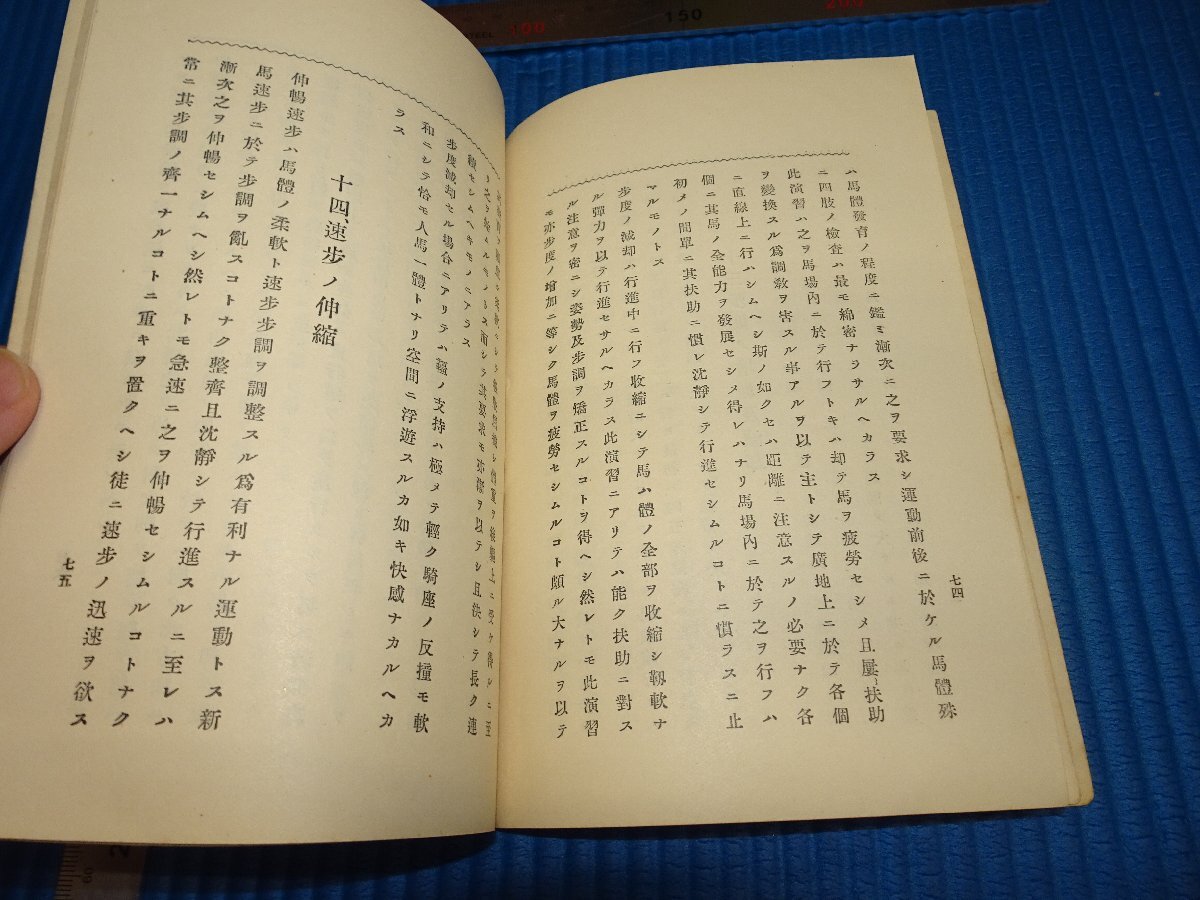 七四
ハ馬體發育ノ程度ニ鑑ミ漸次ニ之ヲ要求シ運動前後ニ於ケル馬體殊
ニ四肢ノ檢査ハ最モ綿密ナラサルヘカラス
此演習ハ之ヲ馬場內ニ於テ行フトキハ却テ馬ヲ疲勞セシメ且屢〻扶助
ヲ變換スル爲調敎ヲ害スル事アルヲ以テ主トシテ廣地上ニ於テ各個
ニ直線上ニ行ハシムヘシ斯ノ如クセハ距離ニ注意スルノ必要ナク各
個ニ其馬ノ全能力ヲ發展セシメ得レハナリ馬場內ニ於テ之ヲ行フハ
初メノ間單ニ其扶助ニ慣レ沈靜シテ行進セシムルコトニ慣ラスニ止
マルモノトス
步度ノ減却ハ行進中ニ行フ收縮ニシテ馬ハ體ノ全部ヲ收縮シ靱軟ナ
ル彈力ヲ以テ行進セサルヘカラス此演習ニアリテハ能ク扶助ニ對ス
ル注意ヲ密ニシ姿勢及步調ヲ矯正スルコトヲ得ヘシ然レトモ此演習
モ亦步度ノ增加ニ等シク馬體ヲ疲勞セシムルコト頗ル大ナルヲ以テ
續セシムヘキモノニアラス
步度減却セル場合ニアリテハ韁ノ支持ハ極メテ輕ク騎座ノ反撞モ軟
和ニシテ恰モ人馬一體トナリ空間ニ浮遊スルカ如キ快感ナカルヘカ
ラス
十四速步ノ伸縮
伸暢速步ハ馬體ノ柔軟ト速步步調ヲ調整スル爲有利ナル運動トス新
馬速步ニ於テ步調ヲ亂スコトナク整齊且沈靜シテ行進スルニ至レハ
漸次之ヲ伸暢セシムヘシ然レトモ急速ニ之ヲ伸暢セシムルコトナク
常ニ其步調ノ齊一ナルコトニ重キヲ置クヘシ徒ニ速步ノ迅速ヲ欲ス
七五
100
150
200
STEEL